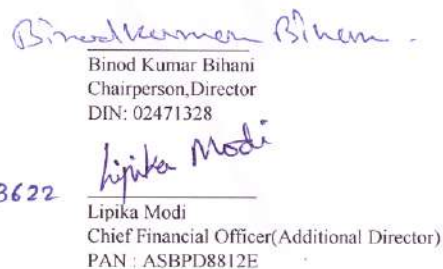 Binod Kumar Bihani
Binod Kumar Bihani
Chairperson,Director
DIN: 02471328
Lipika Modi
3622
Lipika Modi
Chief Financial Officer(Additional Director)
PAN : ASBPD8812E